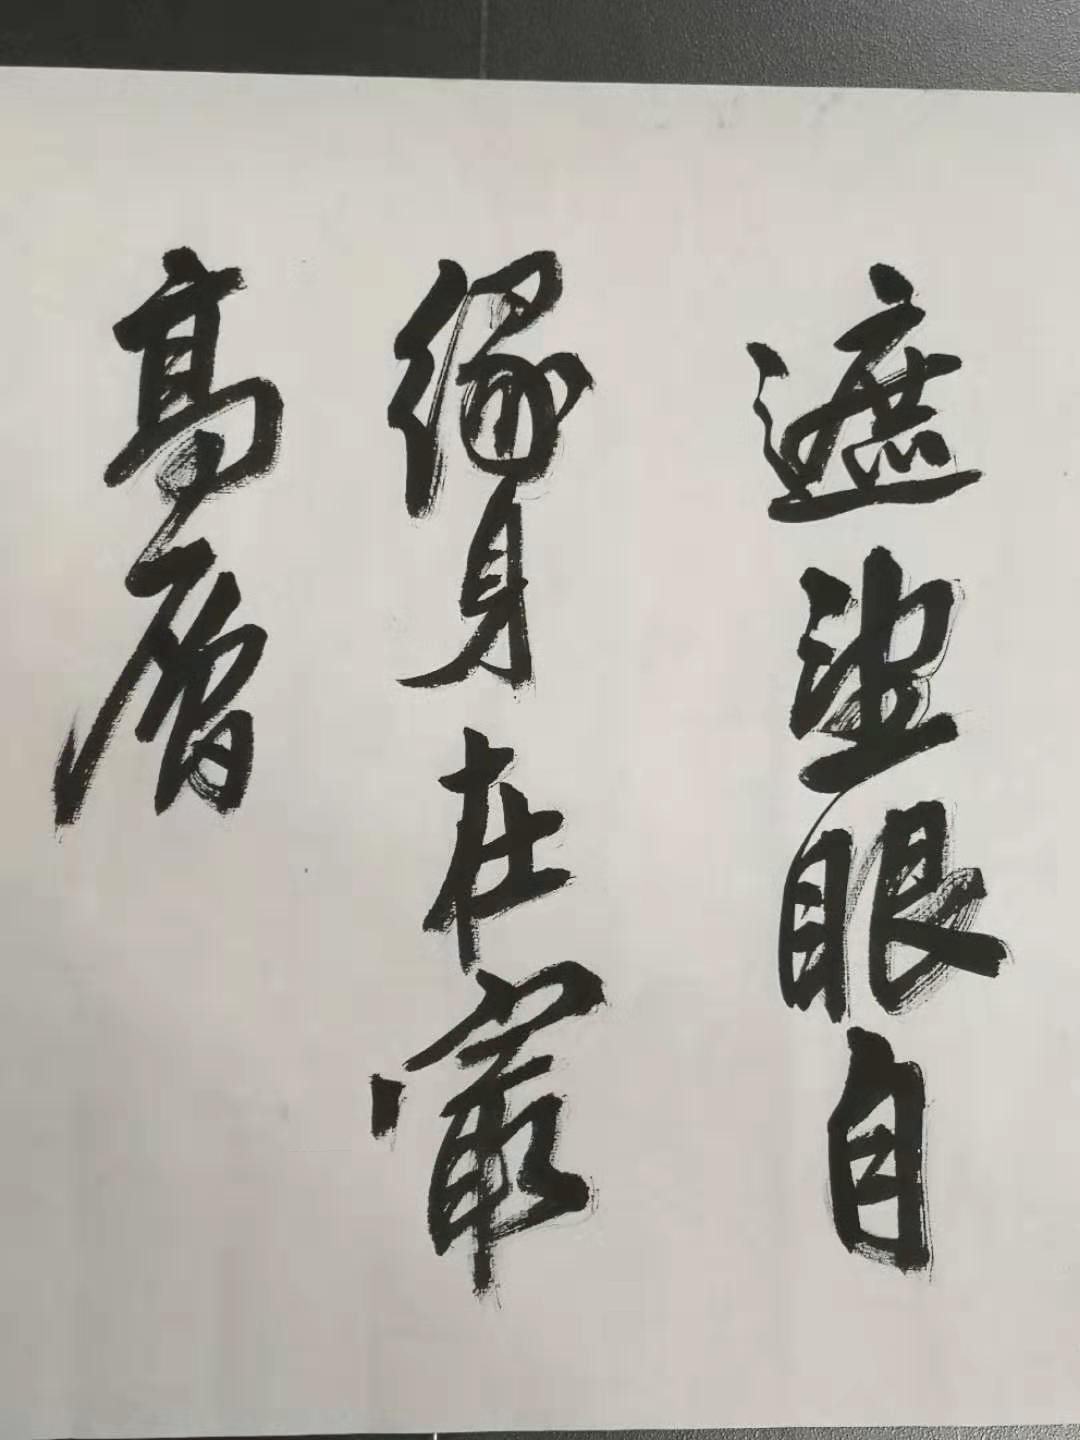 遮望眼自
缘身在最
高层